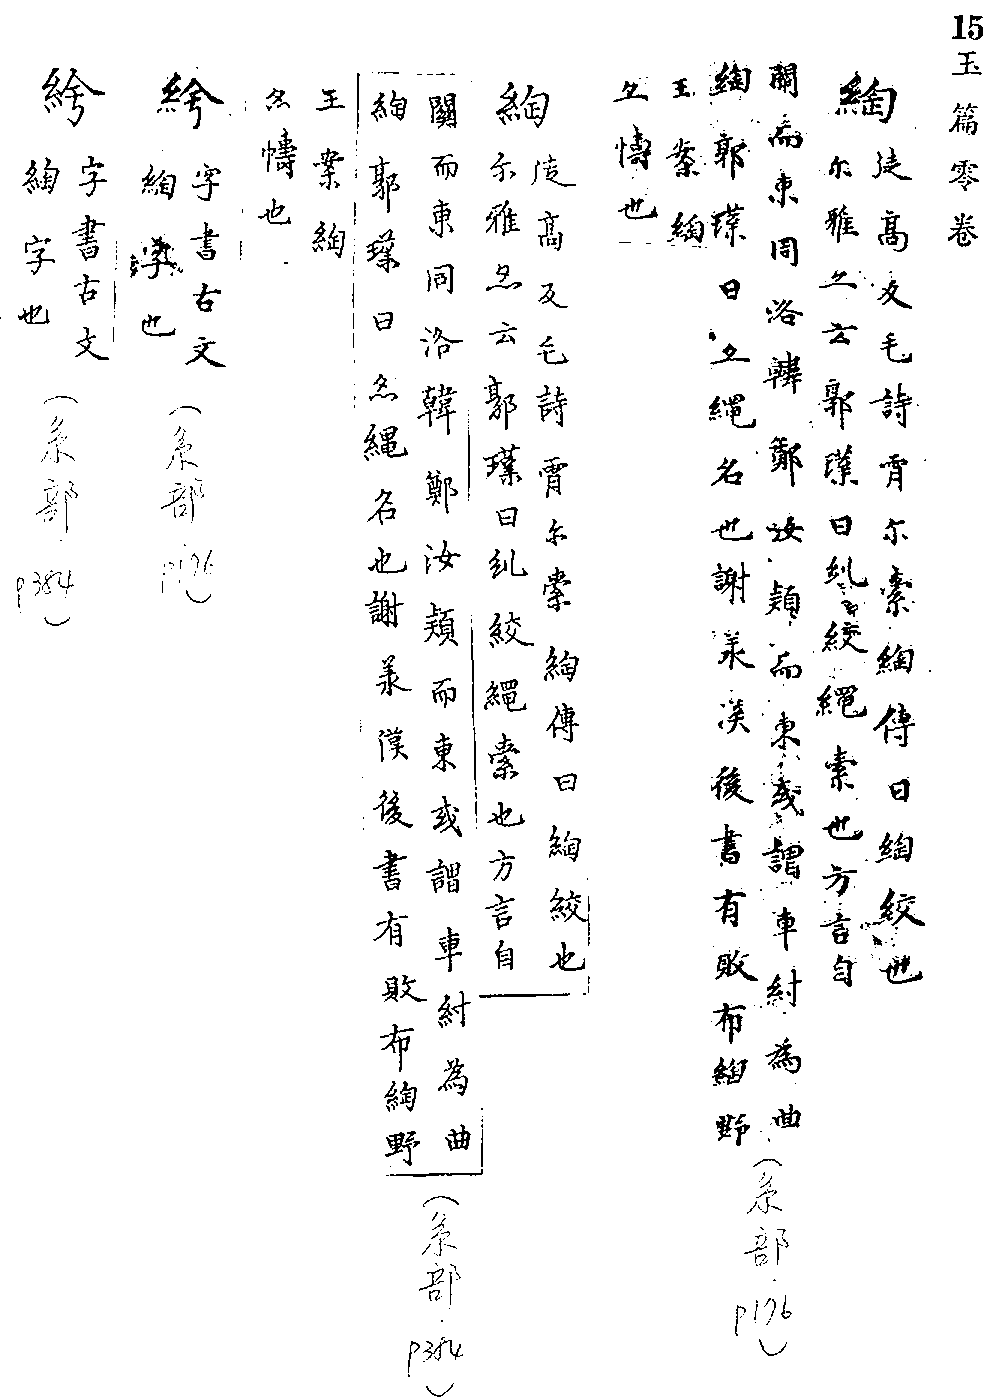 15 玉篇零卷
綯 徒高反毛詩霄尔索綯傳曰綯絞也
尔雅亦云郭璞曰糺絞繩索也方言自
關而東周洛韓鄭汝潁而東或謂車紂為曲
綯郭璞曰亦繩名也謝承漢後書有敗布綯野
王案綯
亦幬也
(糸部 P176)
綯 徒高反毛詩霄尔索綯傳曰綯絞也
尔雅亦云郭璞曰糺絞繩索也方言自
關而東同洛韓鄭汝潁而東或謂車紂為曲
綯郭璞曰亦繩名也謝承漢後書有敗布綯野
王案綯
亦幬也
(糸部 P384)
字書古文
綯字也
(糸部 P176)
字書古文
綯字也
(糸部 P384)